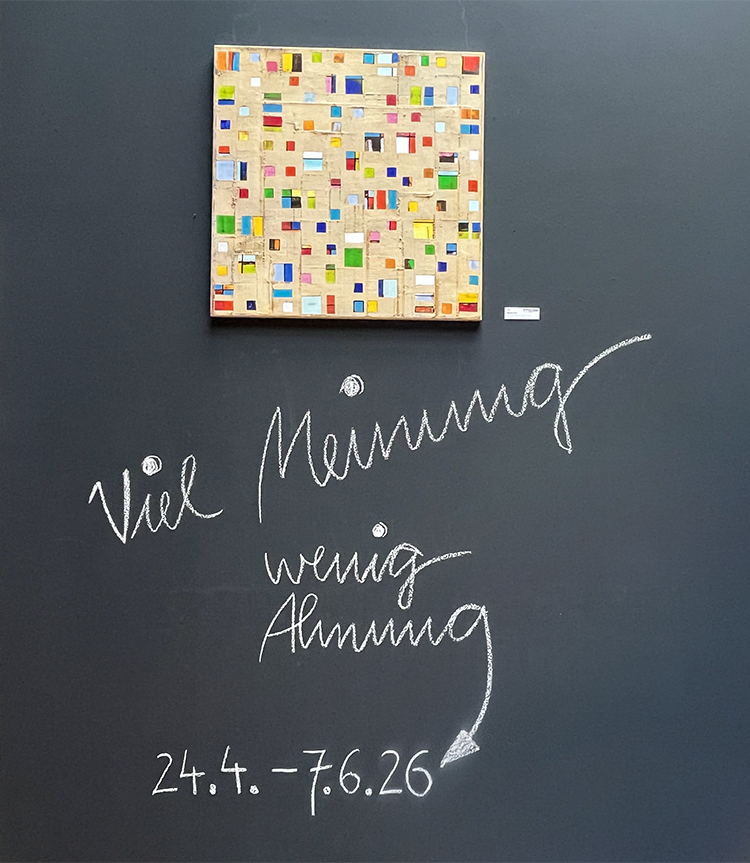 Viel Meinung
wenig
Ahnung
24.4. – 7.6.26